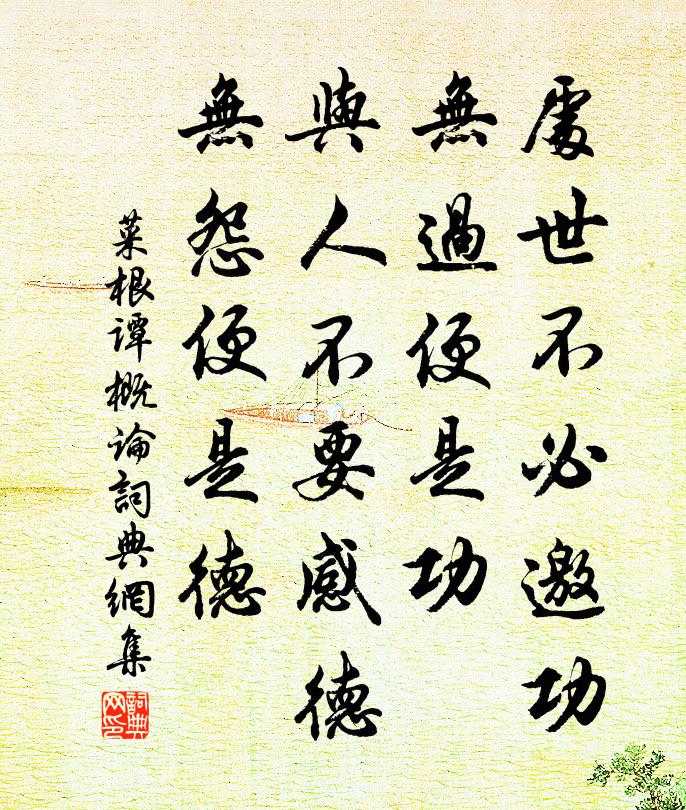 處世不必邀功
無過便是功
與人不要感德
無怨便是德
菜根谭概論詞典網集
詞典
网印